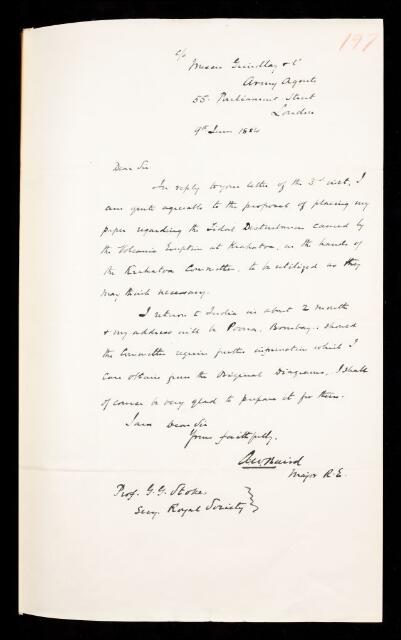 197
c/o
Messrs Grindlay & Co
Army Agents
55 Parliament Street
London
9th June 1884
Dear Sir
In reply to your letter of the 3rd inst, I
am quite agreeable to the proposal of placing my
paper regarding the Tidal Disturbances caused by
the Volcanic Eruption at Krakatoa, in the hands of
the Krakatoa Committee, to be utilized as they
may think necessary.
I return to India in about 2 months
& my address will be Poona, Bombay: should
the Committee require further information which I
can obtain from the Original Diagrams, I shall
of course be very glad to prepare it for them.
I am Dear Sir
Yours faithfully.
AWBaird
Major R.E.
Prof. G. G. Stokes
Secy. Royal Society